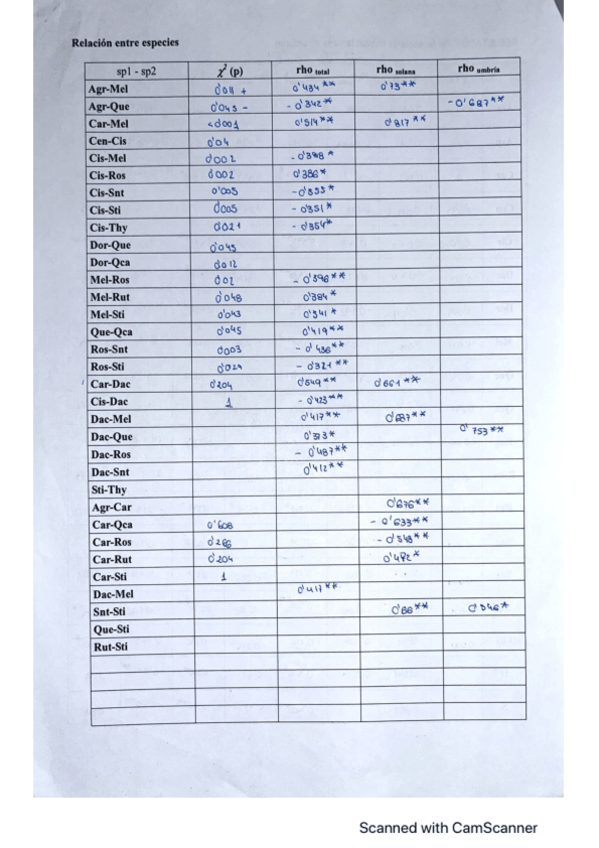 Relación entre especies
sp1 - sp2 χ² (p) rho total rho solana rho umbría
Agr-Mel 0'011 + 0'434** 0'73**
Agr-Que 0'045 - - 0'342* - 0'687**
Car-Mel <0'001 0'514** 0'817**
Cen-Cis 0'04
Cis-Mel 0'002 - 0'398*
Cis-Ros 0'002 0'386*
Cis-Snt 0'005 - 0'353*
Cis-Sti 0'005 - 0'351*
Cis-Thy 0'021 - 0'354*
Dor-Que 0'045
Dor-Qca 0'012
Mel-Ros 0'02 - 0'596**
Mel-Rut 0'048 0'384*
Mel-Sti 0'043 0'341*
Que-Qca 0'045 0'419**
Ros-Snt 0'003 - 0'436**
Ros-Sti 0'024 - 0'321**
Car-Dac 0'204 0'549** 0'661**
Cis-Dac 1 - 0'423**
Dac-Mel 0'417** 0'687**
Dac-Que 0'373* 0'753**
Dac-Ros - 0'487**
Dac-Snt 0'412**
Sti-Thy
Agr-Car 0'676**
Car-Qca 0'608 - 0'633**
Car-Ros 0'286 - 0'548**
Car-Rut 0'204 0'472*
Car-Sti 1
Dac-Mel 0'417**
Snt-Sti 0'66** 0'546*
Que-Sti
Rut-Sti
Scanned with CamScanner